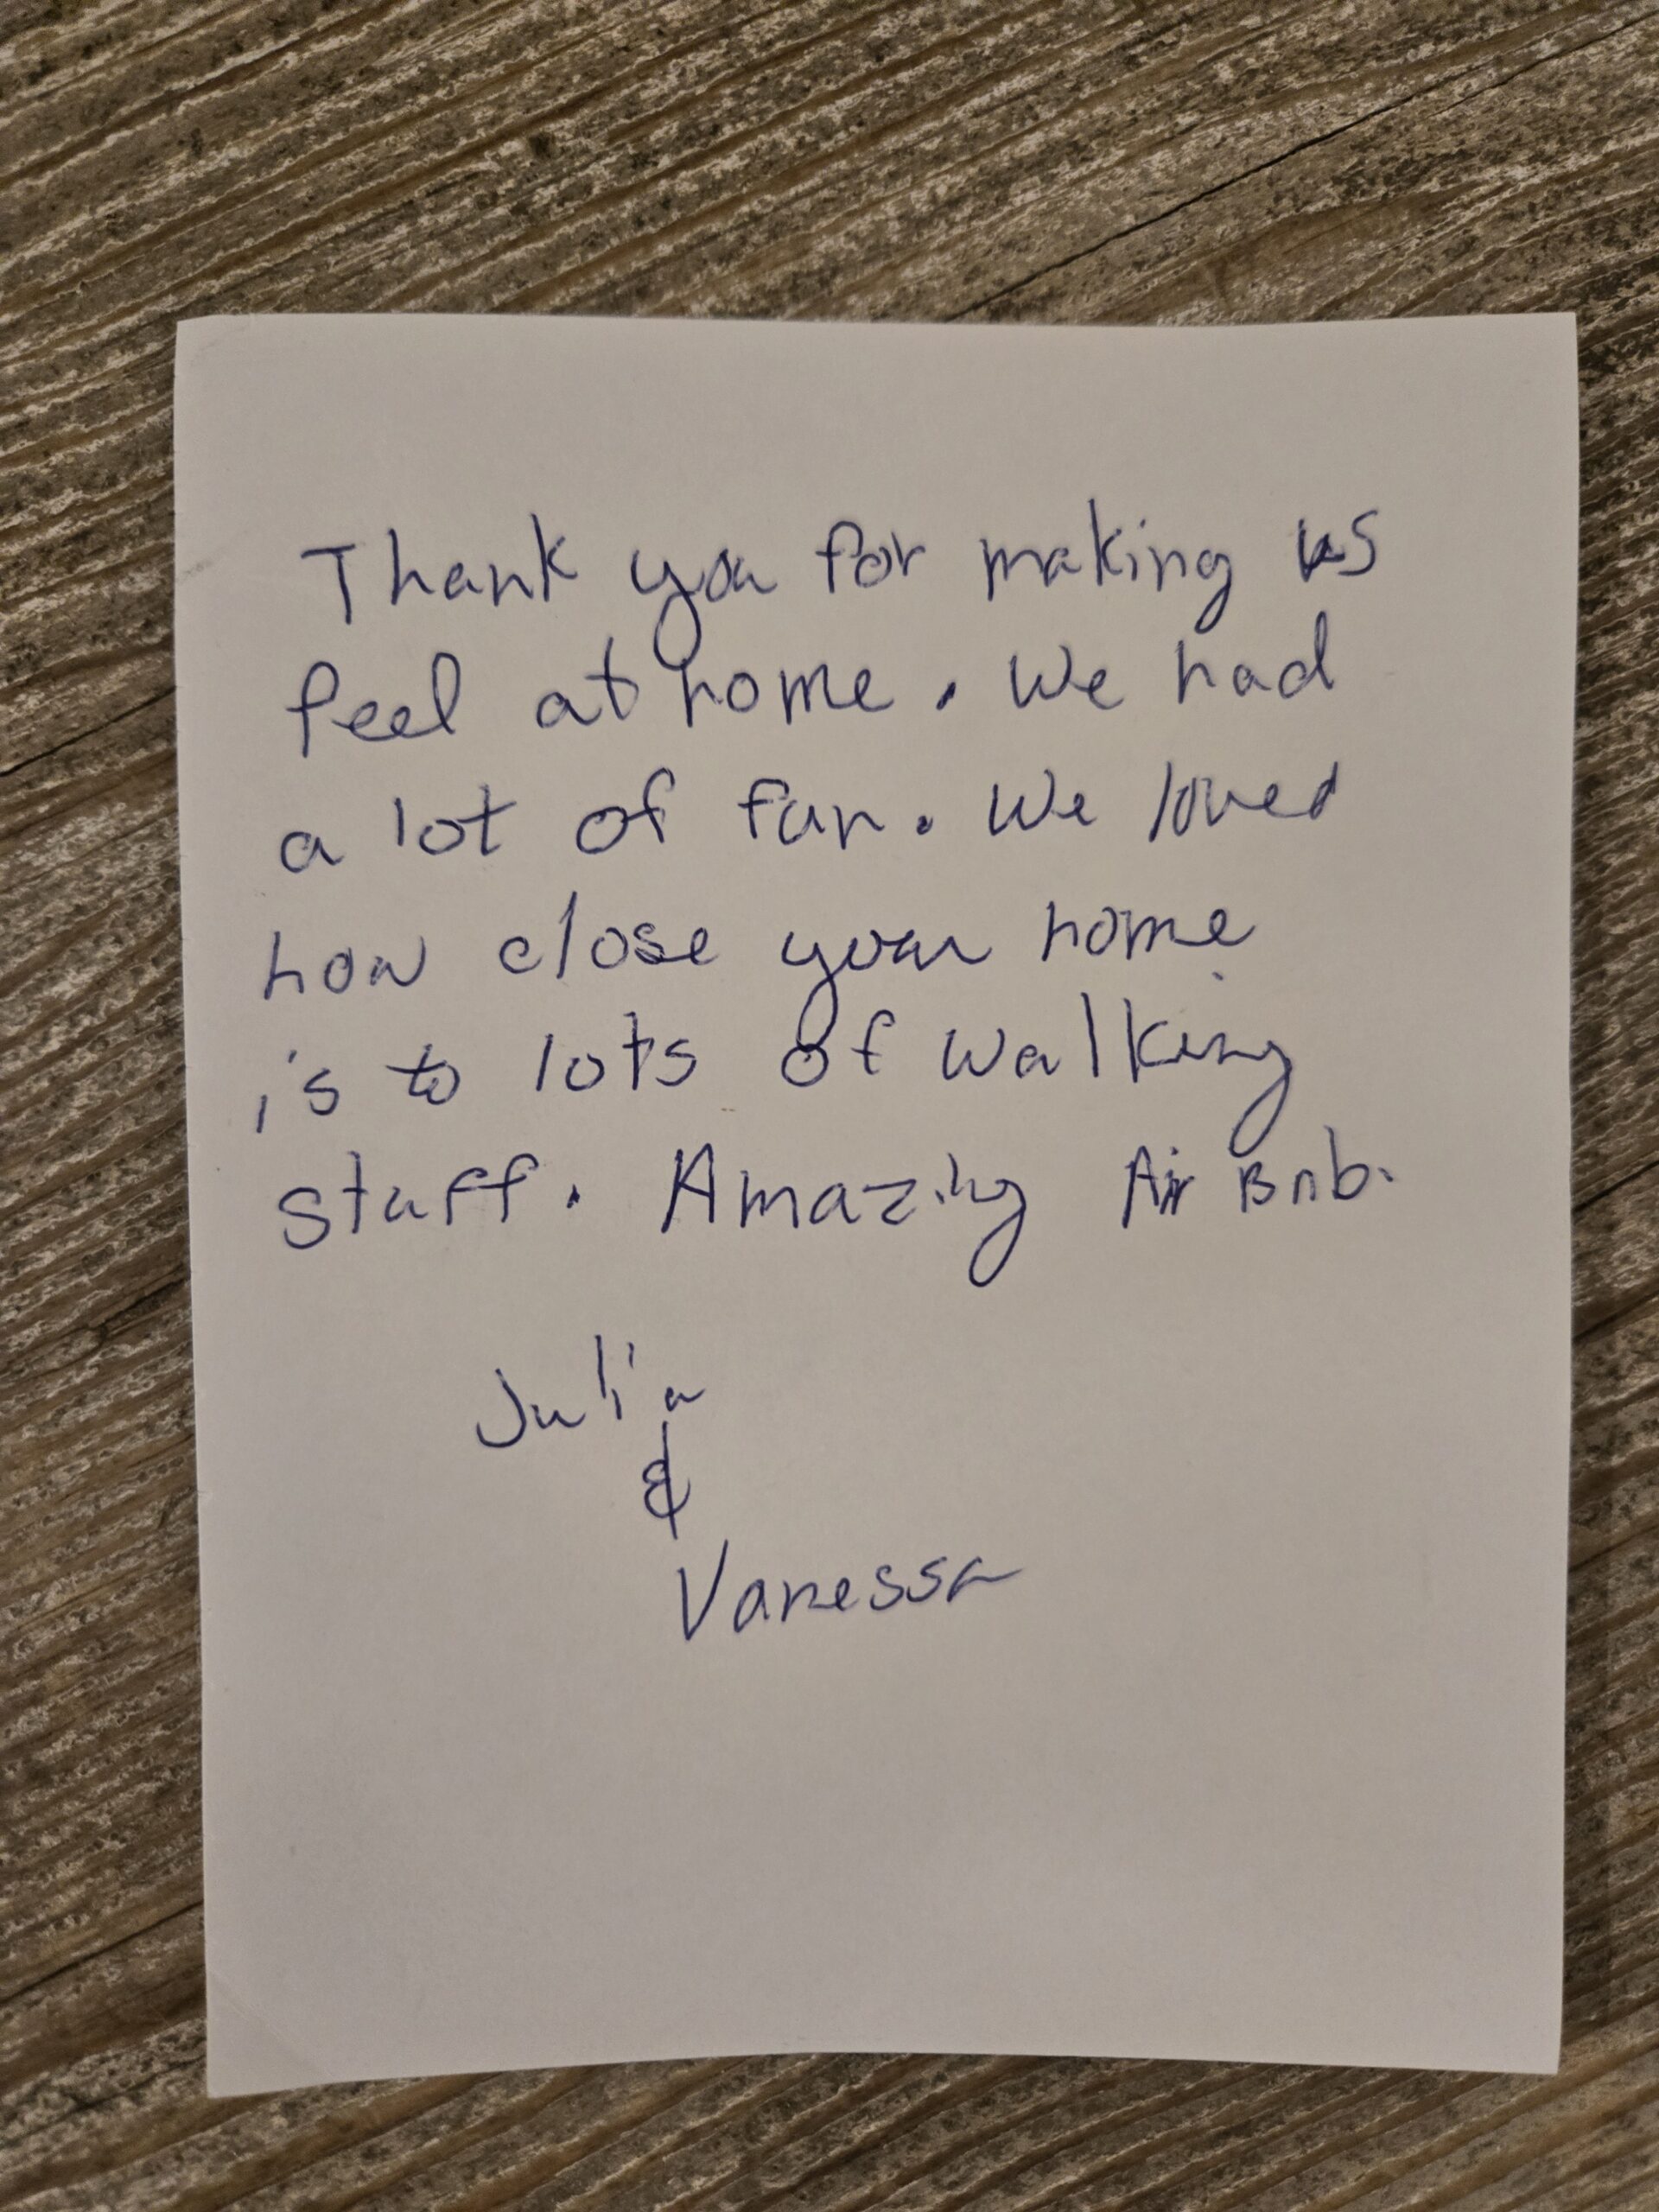 Thank you for making us
feel at home. We had
a lot of fun. We loved
how close your home
is to lots of walking
stuff. Amazing Air Bnb.
Julia
&
Vanessa